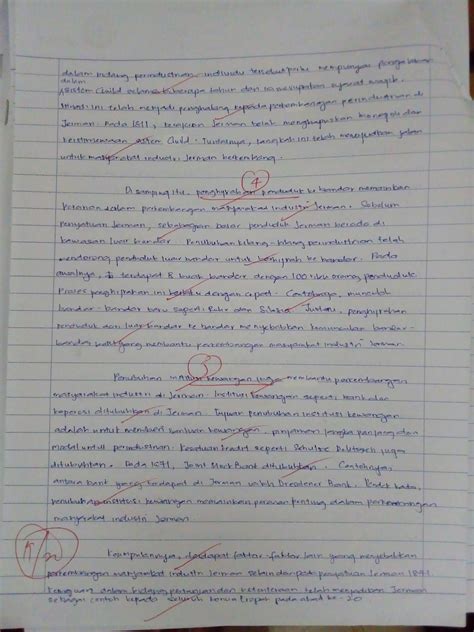 dalam bidang perindustrian individu tersebut perlu mempunyai pengalaman
dalam
sistem Guild selama beberapa tahun dan ia merupakan syarat wajib.
ini telah menjadi penghalang kepada perkembangan perindustrian di
Jerman. Pada 1871, kerajaan Jerman telah menghapuskan monopoli dan
keistimewaan sistem Guild. Justeru, langkah ini telah jalan
untuk masyarakat industri Jerman berkembang.
4
Di samping itu, penghijrahan penduduk ke bandar memainkan
peranan dalam perkembangan masyarakat industri Jerman. Sebelum
penyatuan Jerman, sebahagian besar penduduk Jerman berada di
kawasan luar bandar. Penubuhan kilang-kilang perindustrian telah
mendorong penduduk luar bandar untuk berhijrah ke bandar. Pada
awalnya, terdapat 8 buah bandar dengan 100 ribu orang penduduk.
Proses penghijrahan ini berlaku dengan cepat. Contohnya, muncul
bandar-bandar baru seperti dan Silesia. Justeru, penghijrahan
penduduk dari luar bandar ke bandar menyebabkan kemunculan bandar-
bandar yang membantu perkembangan masyarakat industri Jerman.
5
Penubuhan institusi kewangan juga membantu perkembangan
masyarakat industri di Jerman. Institusi kewangan seperti bank dan
koperasi ditubuhkan di Jerman. Tujuan penubuhan institusi kewangan
adalah untuk memberi bantuan kewangan, pinjaman jangka panjang dan
modal untuk perindustrian. Kesatuan kredit seperti Schultze Delitzsch juga
ditubuhkan. Pada 1871, Joint Stock Bank ditubuhkan. Contohnya,
antara bank yang terdapat di Jerman ialah Dresdener Bank. kata,
penubuhan institusi kewangan memainkan peranan penting dalam perkembangan
masyarakat industri Jerman.
15/20
Kesimpulannya, terdapat faktor-faktor lain yang menyebabkan
perkembangan masyarakat industri Jerman selain daripada penyatuan Jerman 1871.
dalam bidang dan ketenteraan telah menjadikan Jerman
sebagai contoh kepada seluruh Eropah pada abad ke-20